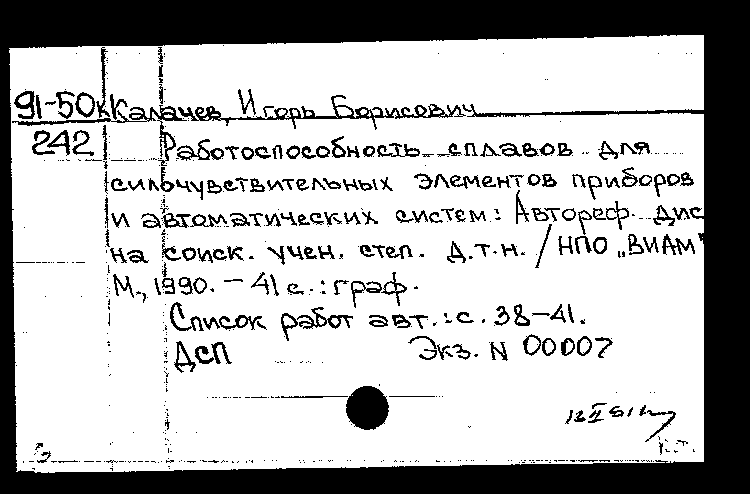 91-50к Калачев, Игорь Борисович
242 Работоспособность сплавов для
силочувствительных элементов приборов
и автоматических систем: Автореф. дис
на соиск. учен. степ. д.т.н. / НПО „ВИАМ"
М., 1990. – 41 с.: граф.
Список работ авт.: с. 38–41.
ДСП Экз. N 00007